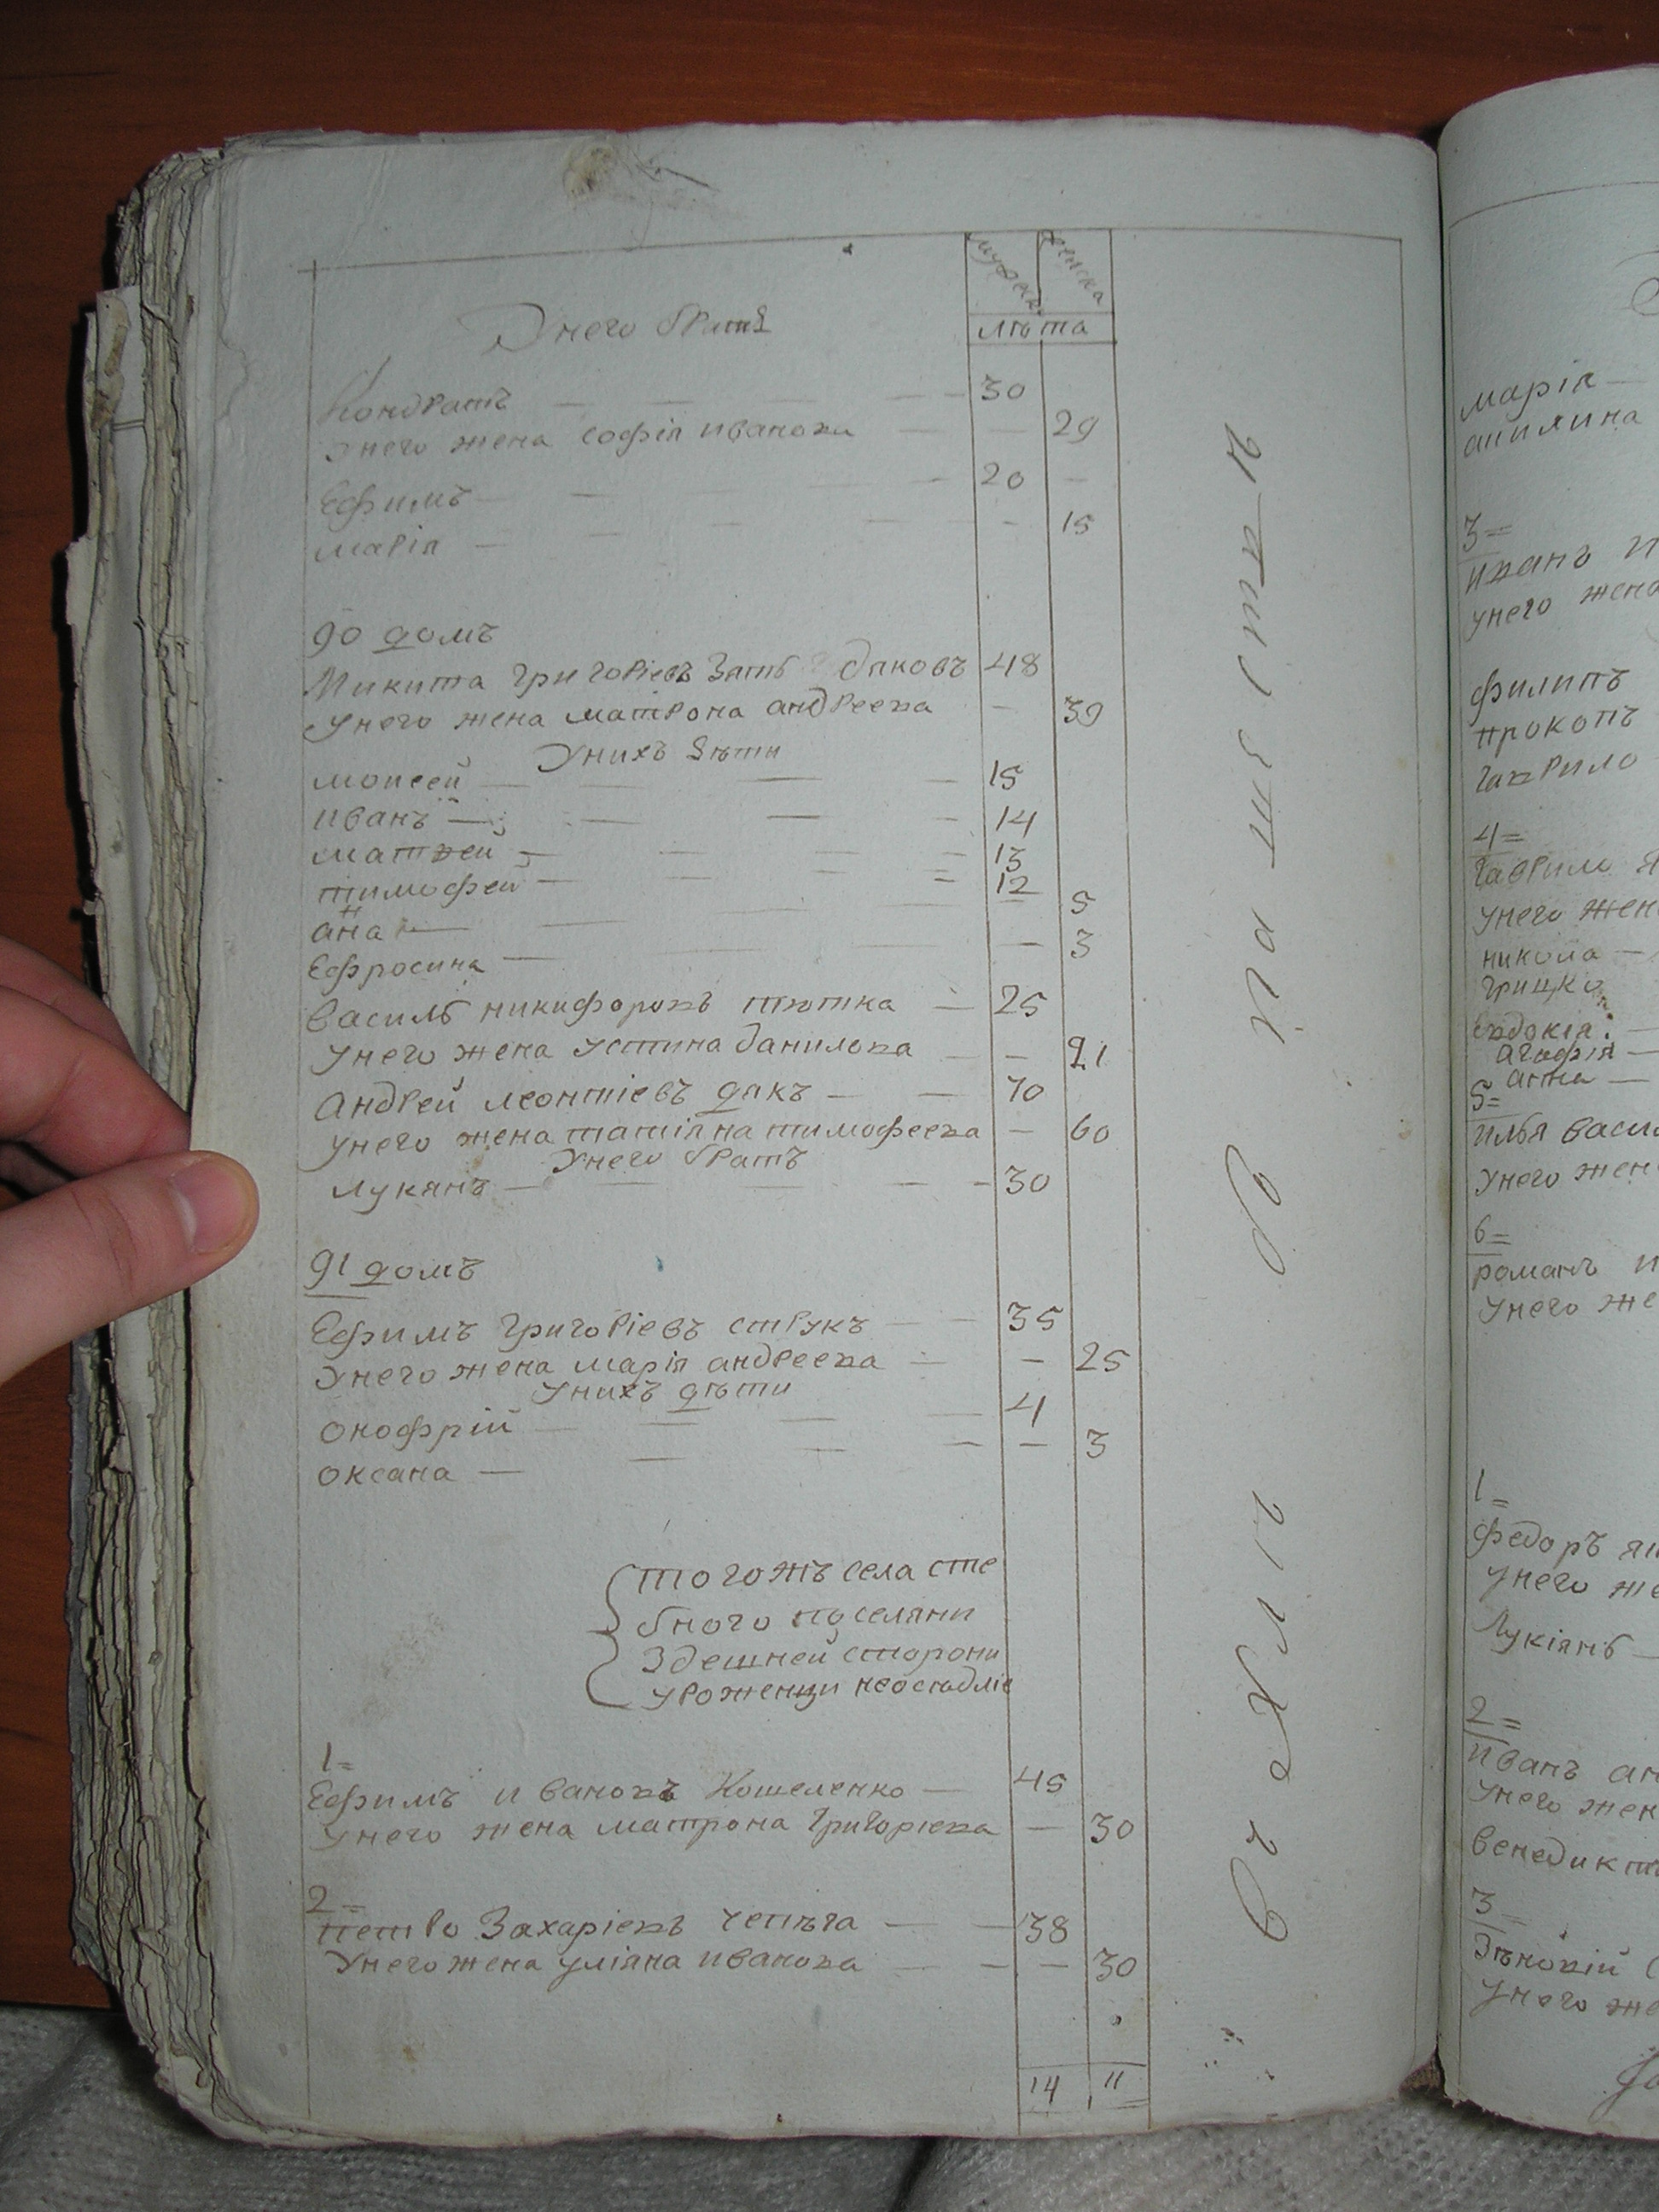 мужска женска
лѣта
Унего братя
Кондратъ — — — 30
Унего жена софія иванова — — 29
Ефимъ — — — 20 —
марія — — — — 15
90 домъ
Микита григоріевъ зять дяковъ 48
Унего жена матрона андреева — 39
Унихъ дѣти
моисей — — — 15
иванъ — — — 14
матвей — — — 13
тимофей — — — 12
анна — — 5
Ефросина — — — 3
василь никифоровъ тютка — 25
унего жена устина данилова — — 21
Андрей леонтіевъ дякъ — — 70
унего жена татіяна тимофеева — 60
Унего братъ
лукянъ — — — 30
91 домъ
Ефимъ григоріевъ струкъ — — 35
Унего жена марія андреева — — 25
унихъ дѣти
онофрій — — — 4
оксана — — — — 3
тогожъ села сте
бного поселяни
здешней сторони
уроженци неоседліе
1=
Ефимъ ивановъ Кошеленко — 45
унего жена матрона григоріева — 30
2=
петро Захаріевъ чепѣга — — 38
Унего жена уліяна иванова — — — 30
14 11
марія —
3=
иванъ
унего жена
филипъ
прокопъ
гаврило
4=
гаврило
унего жен
никола —
грицко
евдокія —
агафія —
анна —
5=
илья васил
Унего жен
6=
романъ
Унего же
1=
федоръ
унего же
Лукіянъ —
2=
иванъ ан
унего жен
венедикт
3=
Унего же